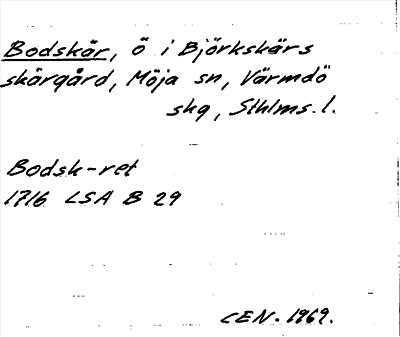 Bodskär, ö i Björkskärs
skärgård, Möja sn, Värmdö
skg, Sthlms. l.
Bodsk-ret
1716 LSA B 29
CEN. 1969.